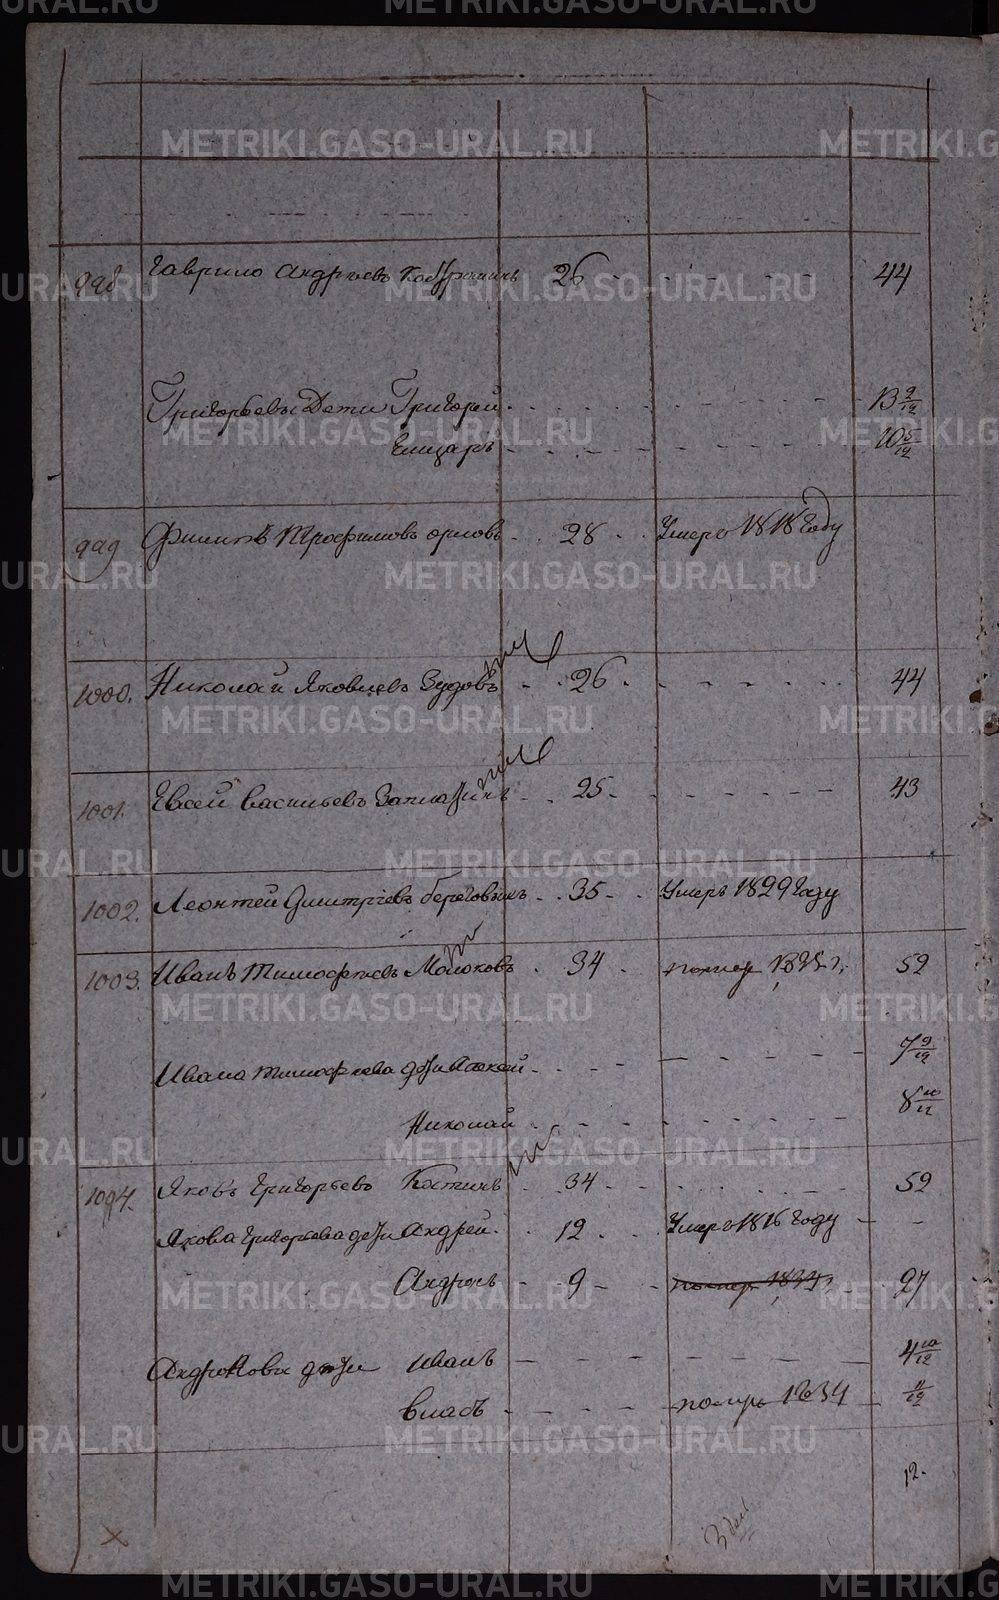 998 Гаврило Андреевъ 26 44
Григорьевы Дети Григорей 13 9/12
Елизаръ 10 5/12
999 Филипъ Трофимовъ орловъ 28 Умеръ 1818 Году
1000. Николай Яковлевъ Зудовъ 26 44
1001. Евсей Васильевъ 25 43
1002. Леонтей Дмитріевъ береговыхъ 35 Умеръ 1829 Году
1003. Иванъ Тимофеевъ Молоковъ 34 52
Ивана Тимофеева дети 7 9/12
Николай 8 10/12
1004. Яковъ Григорьевъ Костинъ 34 52
Якова Григорьева дети Андрей 12 Умеръ 1816 Году
Андронъ 9 27
Андронова дети иванъ 4 10/12
власъ помръ 1834 11/12
12.
METRIKI.GASO-URAL.RU